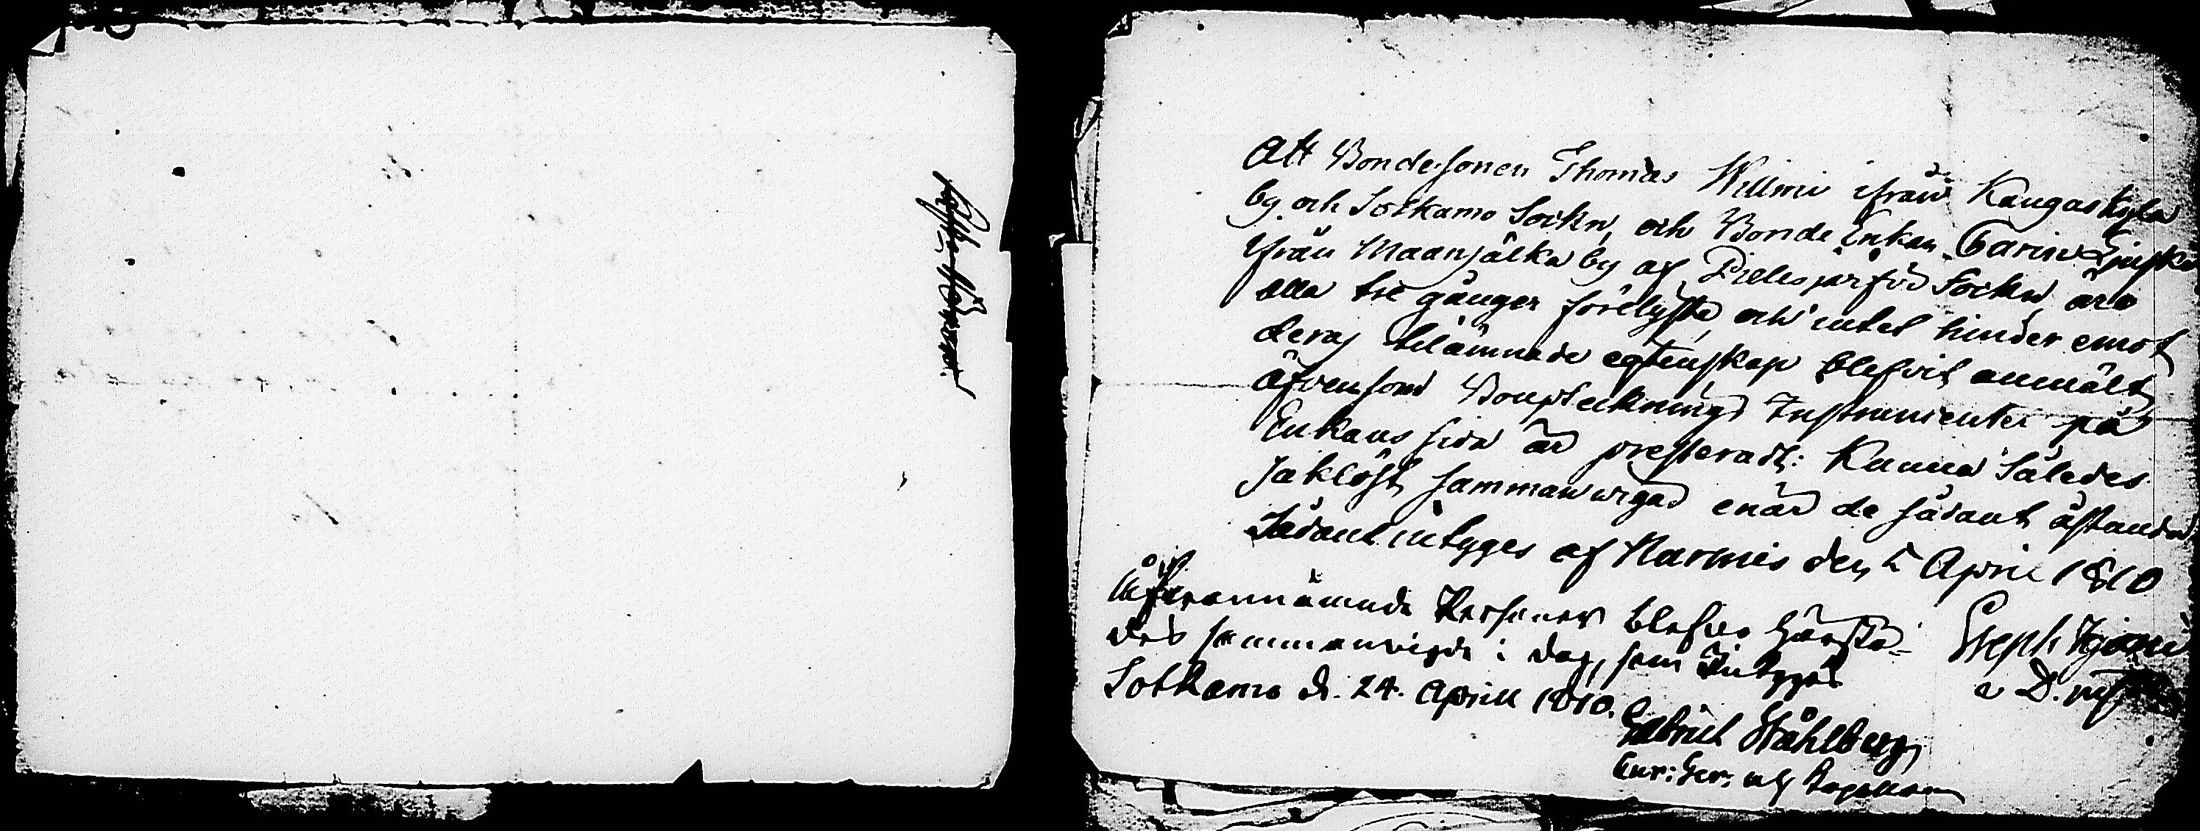 Att Bondesonen Thomas Willmi ifrån Kangaskylä
by och Sotkamo Sockn, och Bonde Enkan Carin
ifrån Maanjälkä by af Pielisjärfvi Sockn, äro
alla tre gånger förelyste, och intet hinder emot
deras tilämnade egtenskap blefvit anmält,
äfvensom Bouptecknings Instrumentet på
Enkans sida är presteradt: Kunna således
saklöst sammanvigas enär de sådant åstunda
Sådant intyges af Nurmis den 5 April 1810
Steph
Åfvannämnde Personer blefvo härstä-
des sammanvigde i dag, som Intygas
Sotkamo d. 24. Aprill 1810.
Gabriel Ståhlberg